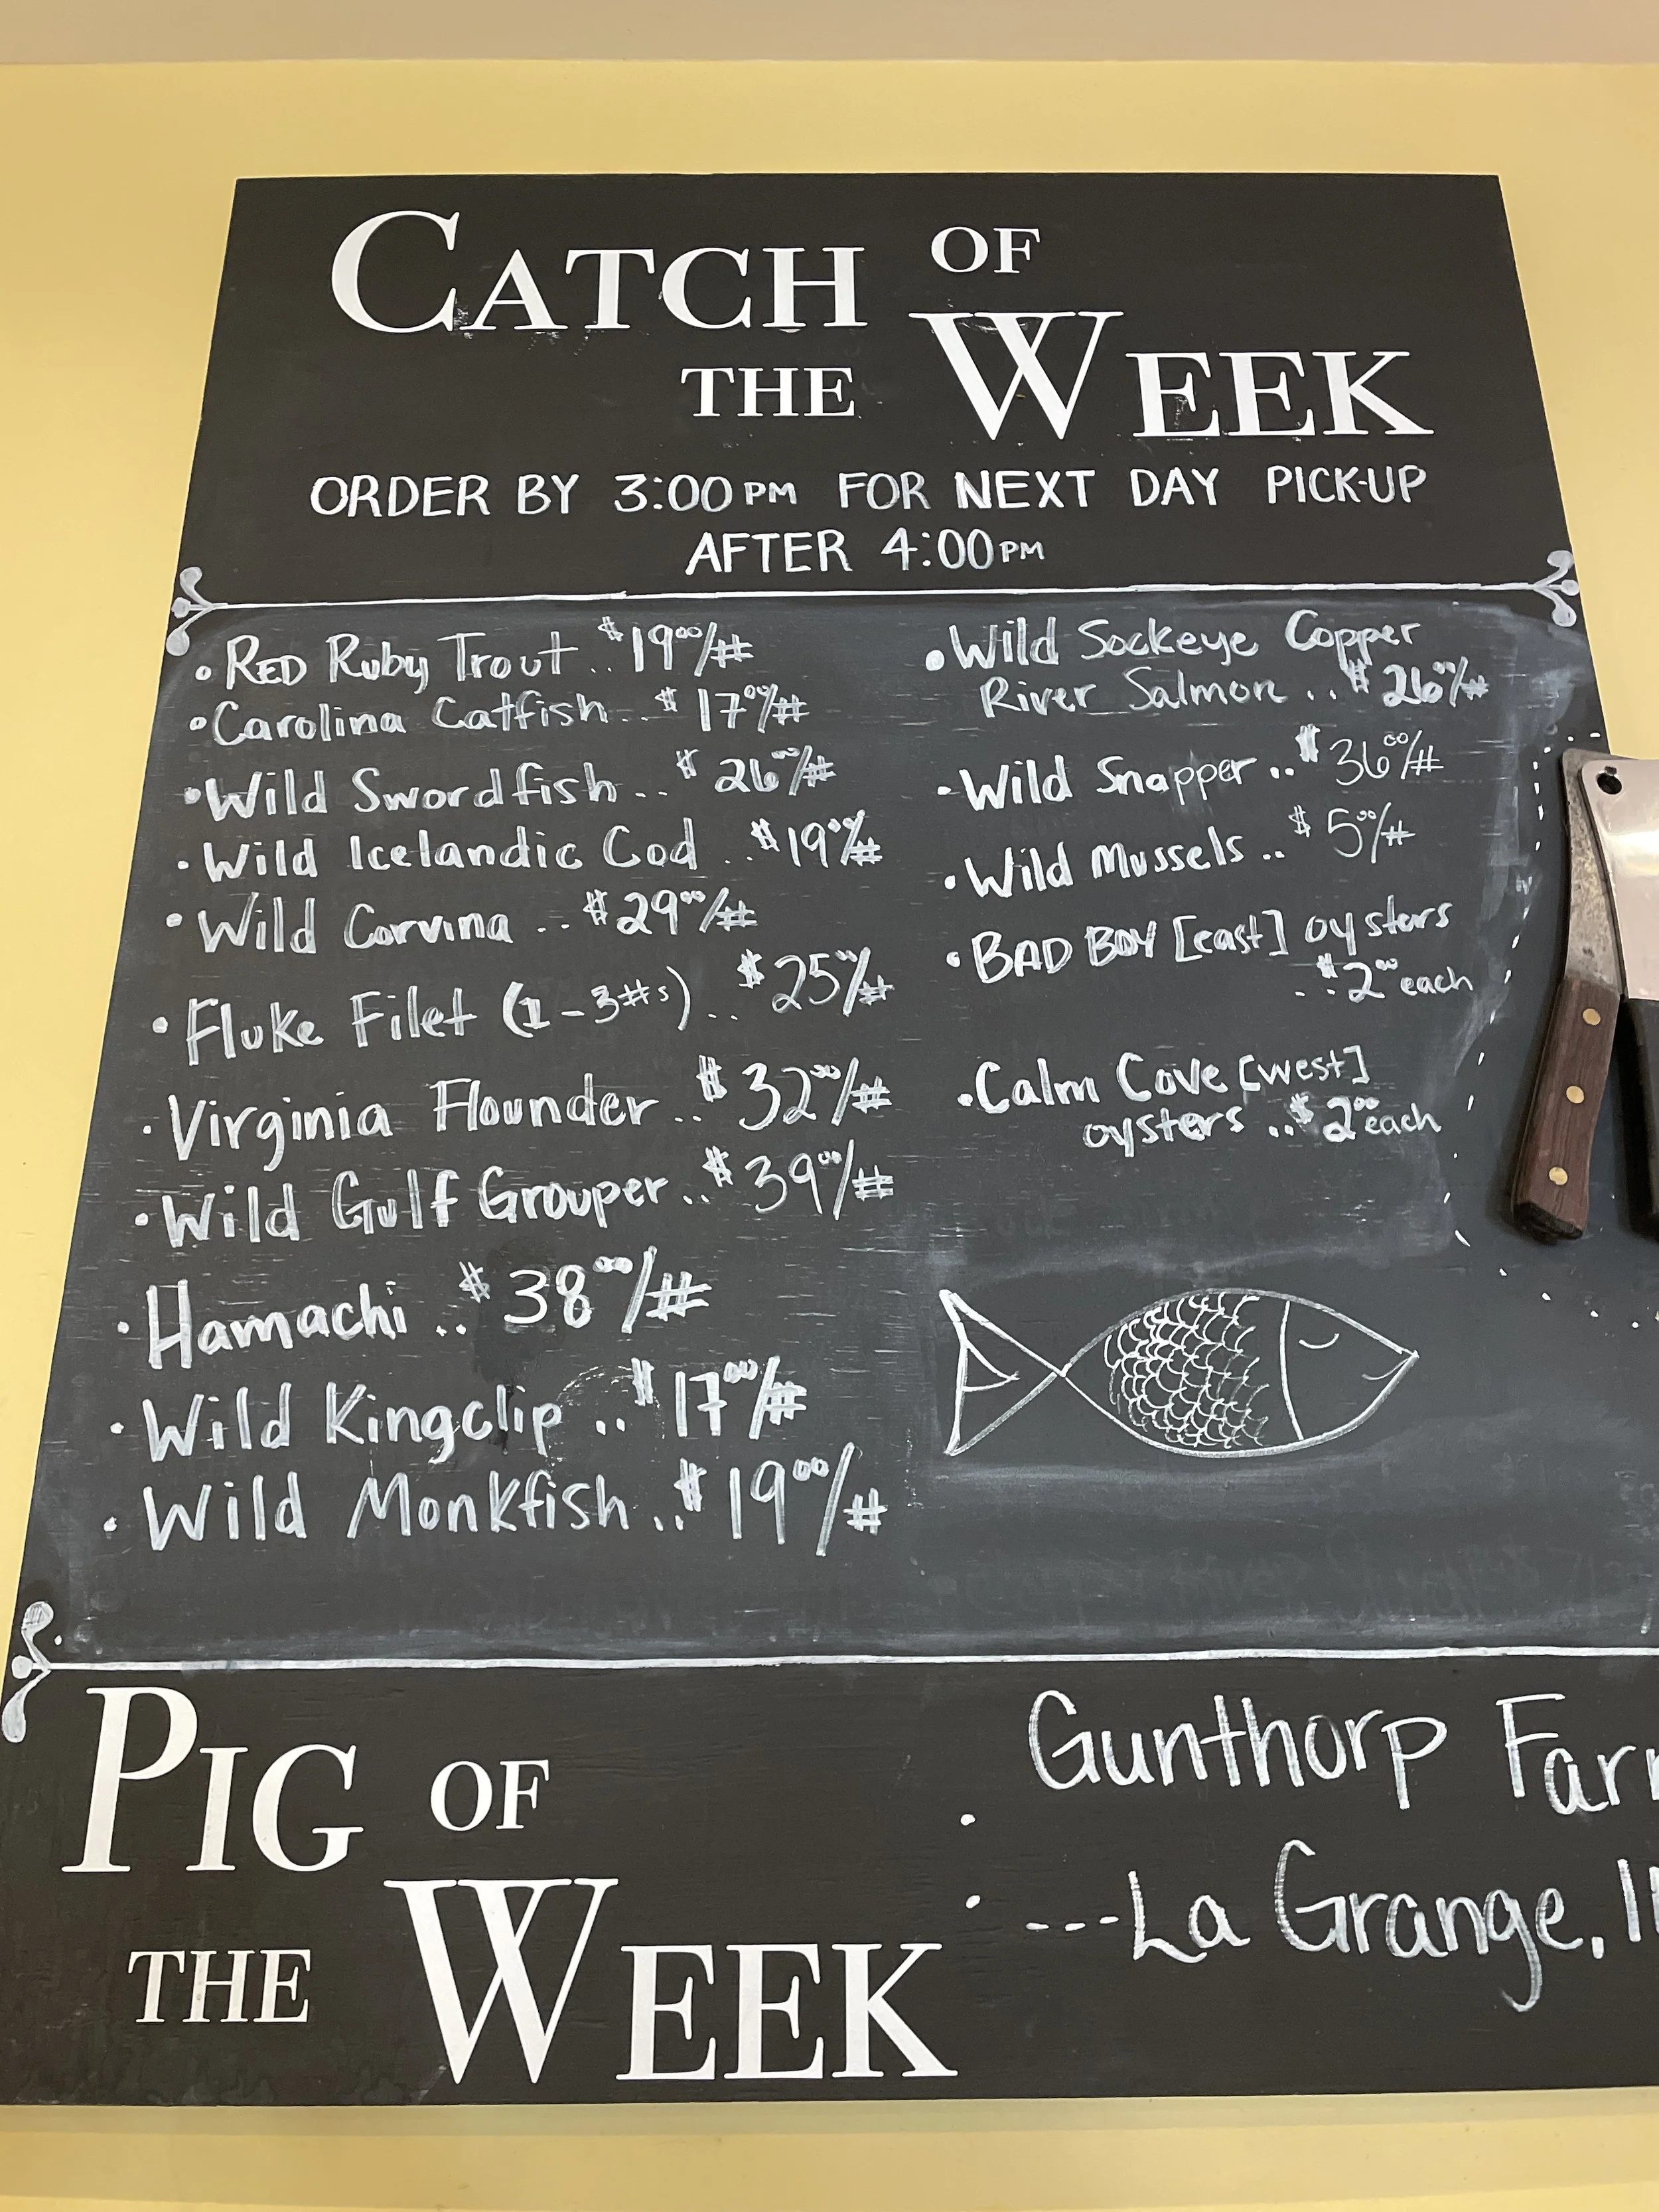 CATCH OF
THE WEEK
ORDER BY 3:00PM FOR NEXT DAY PICK-UP
AFTER 4:00PM
• RED Ruby Trout .. $19⁰⁰/#
• Carolina Catfish .. $17⁰⁰/#
• Wild Swordfish .. $26⁰⁰/#
• Wild Icelandic Cod .. $19⁰⁰/#
• Wild Corvina .. $29⁰⁰/#
• Fluke Filet (1-3#s) .. $25⁰⁰/#
• Virginia Flounder .. $32⁰⁰/#
• Wild Gulf Grouper .. $39⁰⁰/#
• Hamachi .. $38⁰⁰/#
• Wild Kingclip .. $17⁰⁰/#
• Wild Monkfish .. $19⁰⁰/#
• Wild Sockeye Copper
River Salmon .. $26⁰⁰/#
• Wild Snapper .. $36⁰⁰/#
• Wild Mussels .. $5⁰⁰/#
• BAD BOY [east] oysters
.. $2⁰⁰ each
• Calm Cove [west]
oysters .. $2⁰⁰ each
PIG OF
THE WEEK
• Gunthorp Far
• ---La Grange,